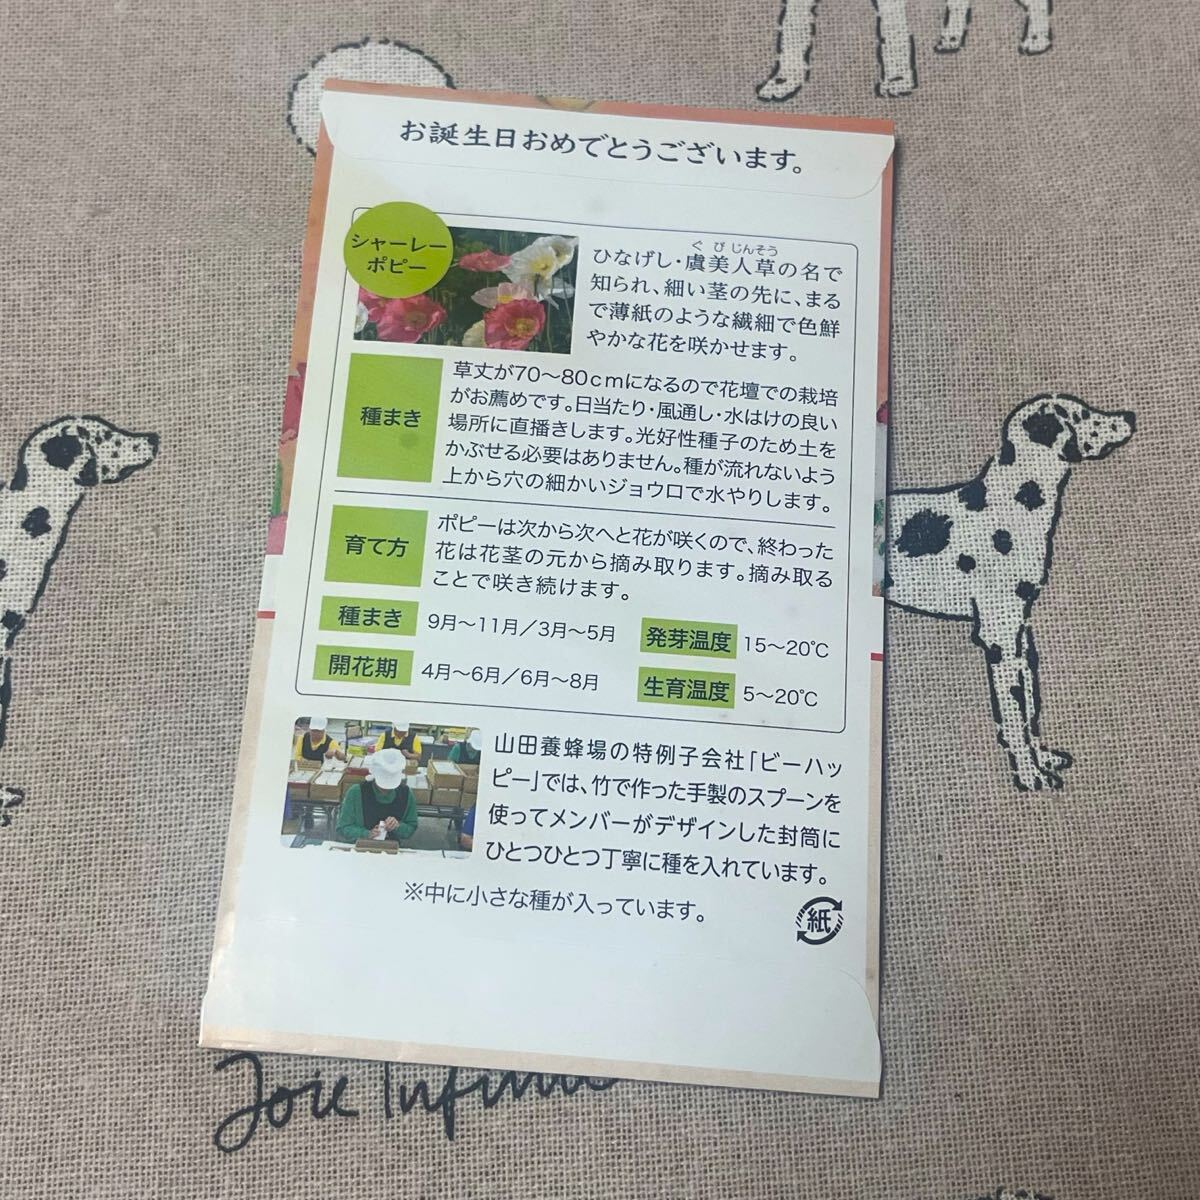 お誕生日おめでとうございます。
シャーレー
ポピー
ぐびじんそう
ひなげし・虞美人草の名で
知られ、細い茎の先に、まる
で薄紙のような繊細で色鮮
やかな花を咲かせます。
種まき
草丈が70〜80cmになるので花壇での栽培
がお薦めです。日当たり・風通し・水はけの良い
場所に直播きします。光好性種子のため土を
かぶせる必要はありません。種が流れないよう
上から穴の細かいジョウロで水やりします。
育て方
ポピーは次から次へと花が咲くので、終わった
花は花茎の元から摘み取ります。摘み取る
ことで咲き続けます。
種まき 9月〜11月/3月〜5月
発芽温度 15〜20℃
開花期 4月〜6月/6月〜8月
生育温度 5〜20℃
山田養蜂場の特例子会社「ビーハッ
ピー」では、竹で作った手製のスプーンを
使ってメンバーがデザインした封筒に
ひとつひとつ丁寧に種を入れています。
※中に小さな種が入っています。
紙
Joie Infinie